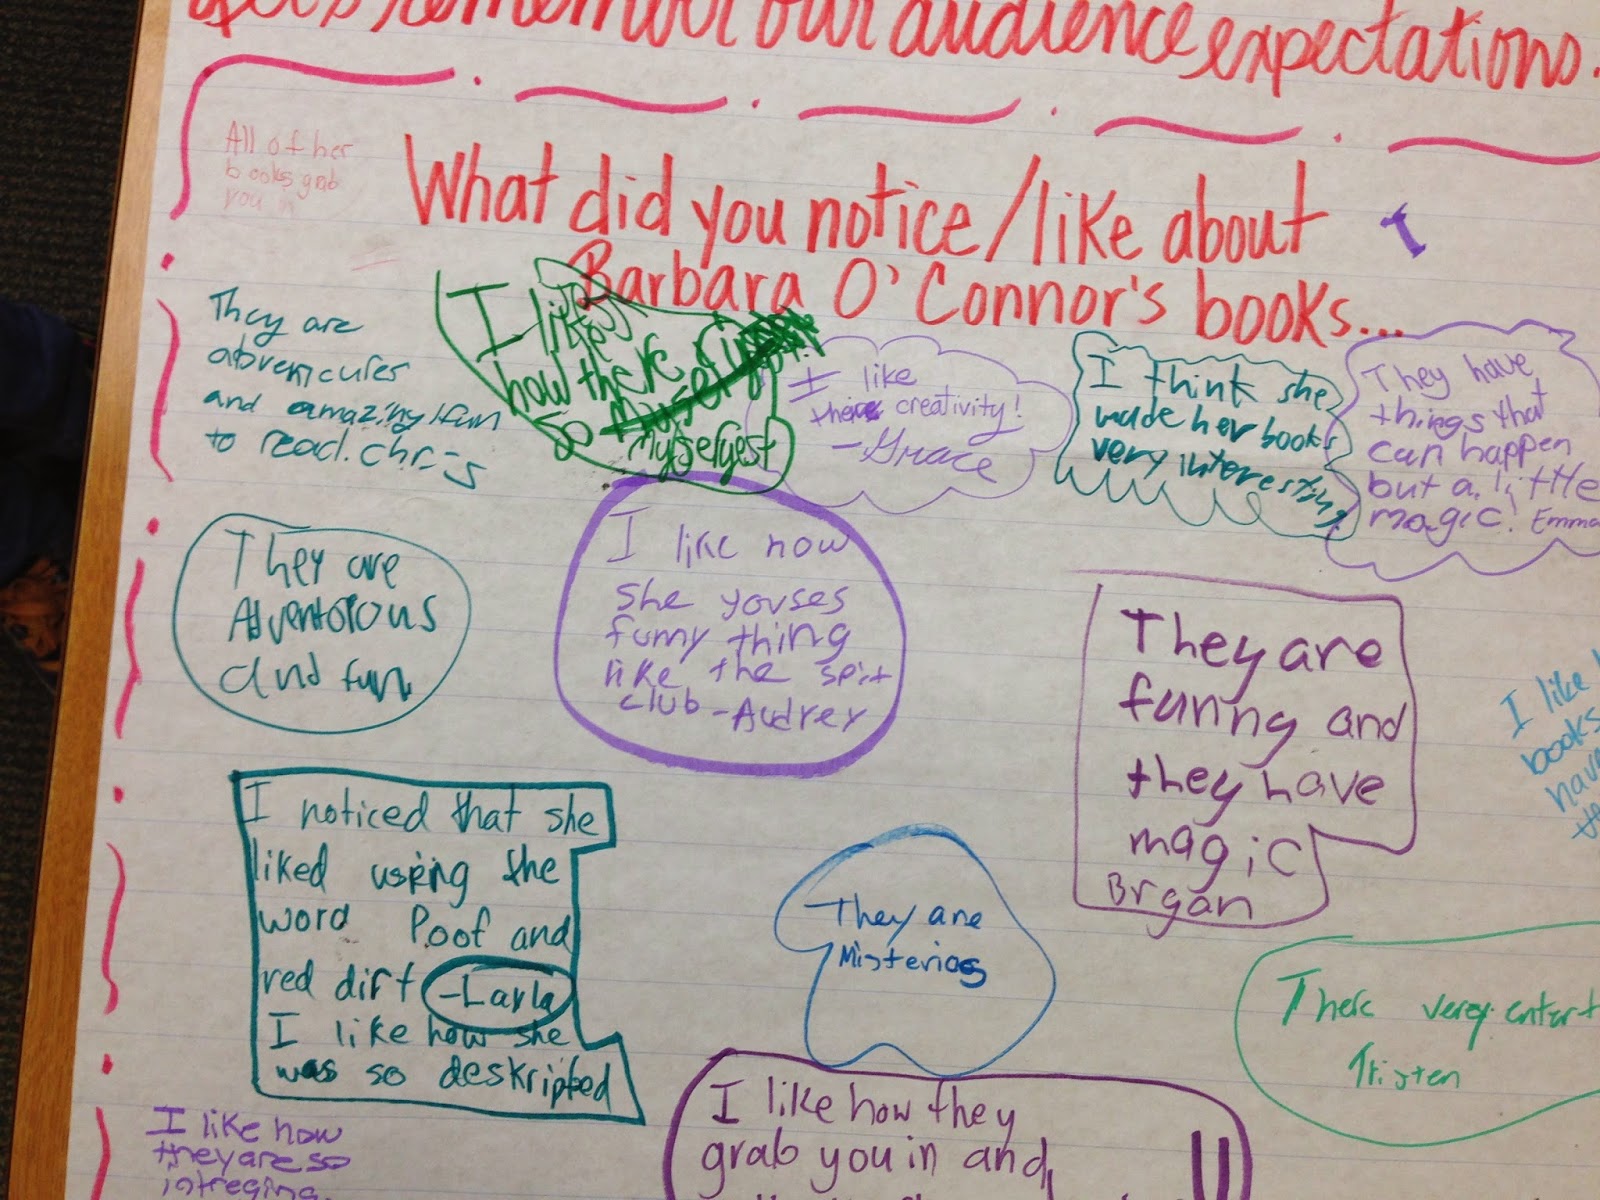 remember our audience expectations.
All of her
books grab
you in
What did you notice/like about
Barbara O'Connor's books...
I
They are
and amazing fun
to read. chris
I like
how there
so
I like
creativity!
-Grace
I think she
made her books
very interesting
They have
things that
can happen
but a little
magic! Emma
They are
Adventorous
and fun
I like how
she youses
funny thing
like the spit
club -Audrey
They are
funny and
they have
magic
Bryan
I like
books
have
I noticed that she
liked using the
word Poof and
red dirt -Layla
I like how she
was so deskripted
They are
Misterios
There verey entert
Tristen
I like how
they are so
intreging
I like how they
grab you in and